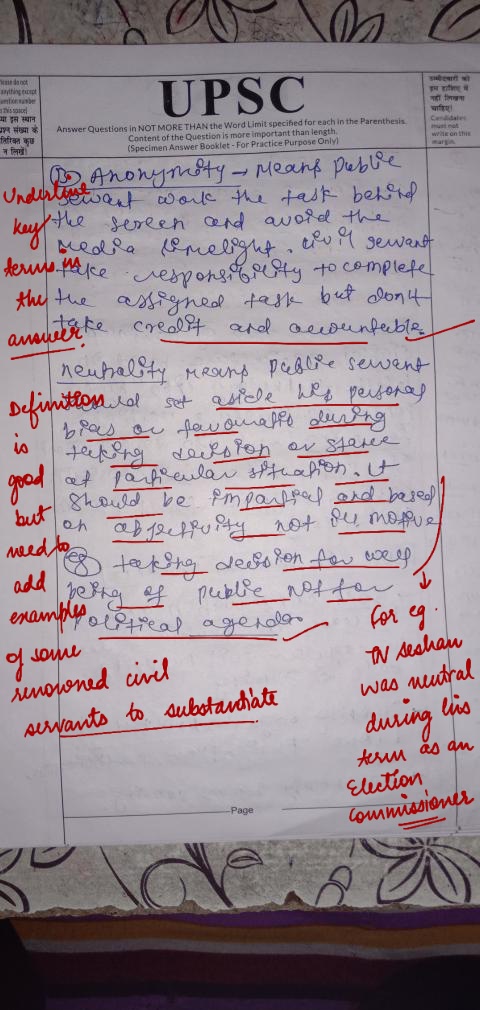 Please do not
anything except
question number
this space)
या इस स्थान
प्रश्न संख्या के
तिरिक्त कुछ
न लिखें)
UPSC
Answer Questions in NOT MORE THAN the Word Limit specified for each in the Parenthesis.
Content of the Question is more important than length.
(Specimen Answer Booklet - For Practice Purpose Only)
उम्मीदवारों को
इस हाशिए में
नहीं लिखना
चाहिए।
Candidates
must not
write on this
margin.
Anonymity → Means Public
servant work the task behind
the screen and avoid the
media limelight. Civil servant
take responsibility to complete
the assigned task but don't
take credit and accountable.
Neutrality means Public servant
should set aside his personal
bias or favouratis during
taking decision or stance
at particular situation. It
should be impartial and based
on objectivity not ill motive
eg taking decision for well
being of public not for
Political agenda.
Underline
key
terms in
the
answer.
Definition
is
good
but
need to
add
examples
of some
renowned civil
servants to substantiate
For eg.
TN Seshan
was neutral
during his
term as an
Election
Commissioner
Page